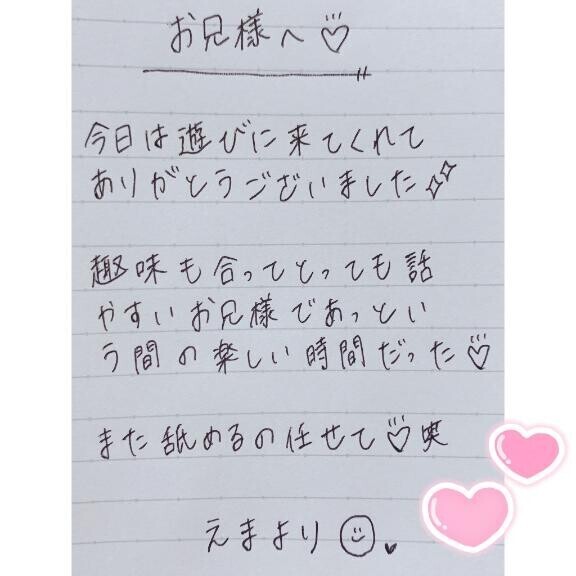 お兄様へ♡
今日は遊びに来てくれて
ありがとうございました✨
趣味も合ってとっても話
やすいお兄様であっとい
う間の楽しい時間だった♡
また舐めるの任せて♡笑
えまより☺♥